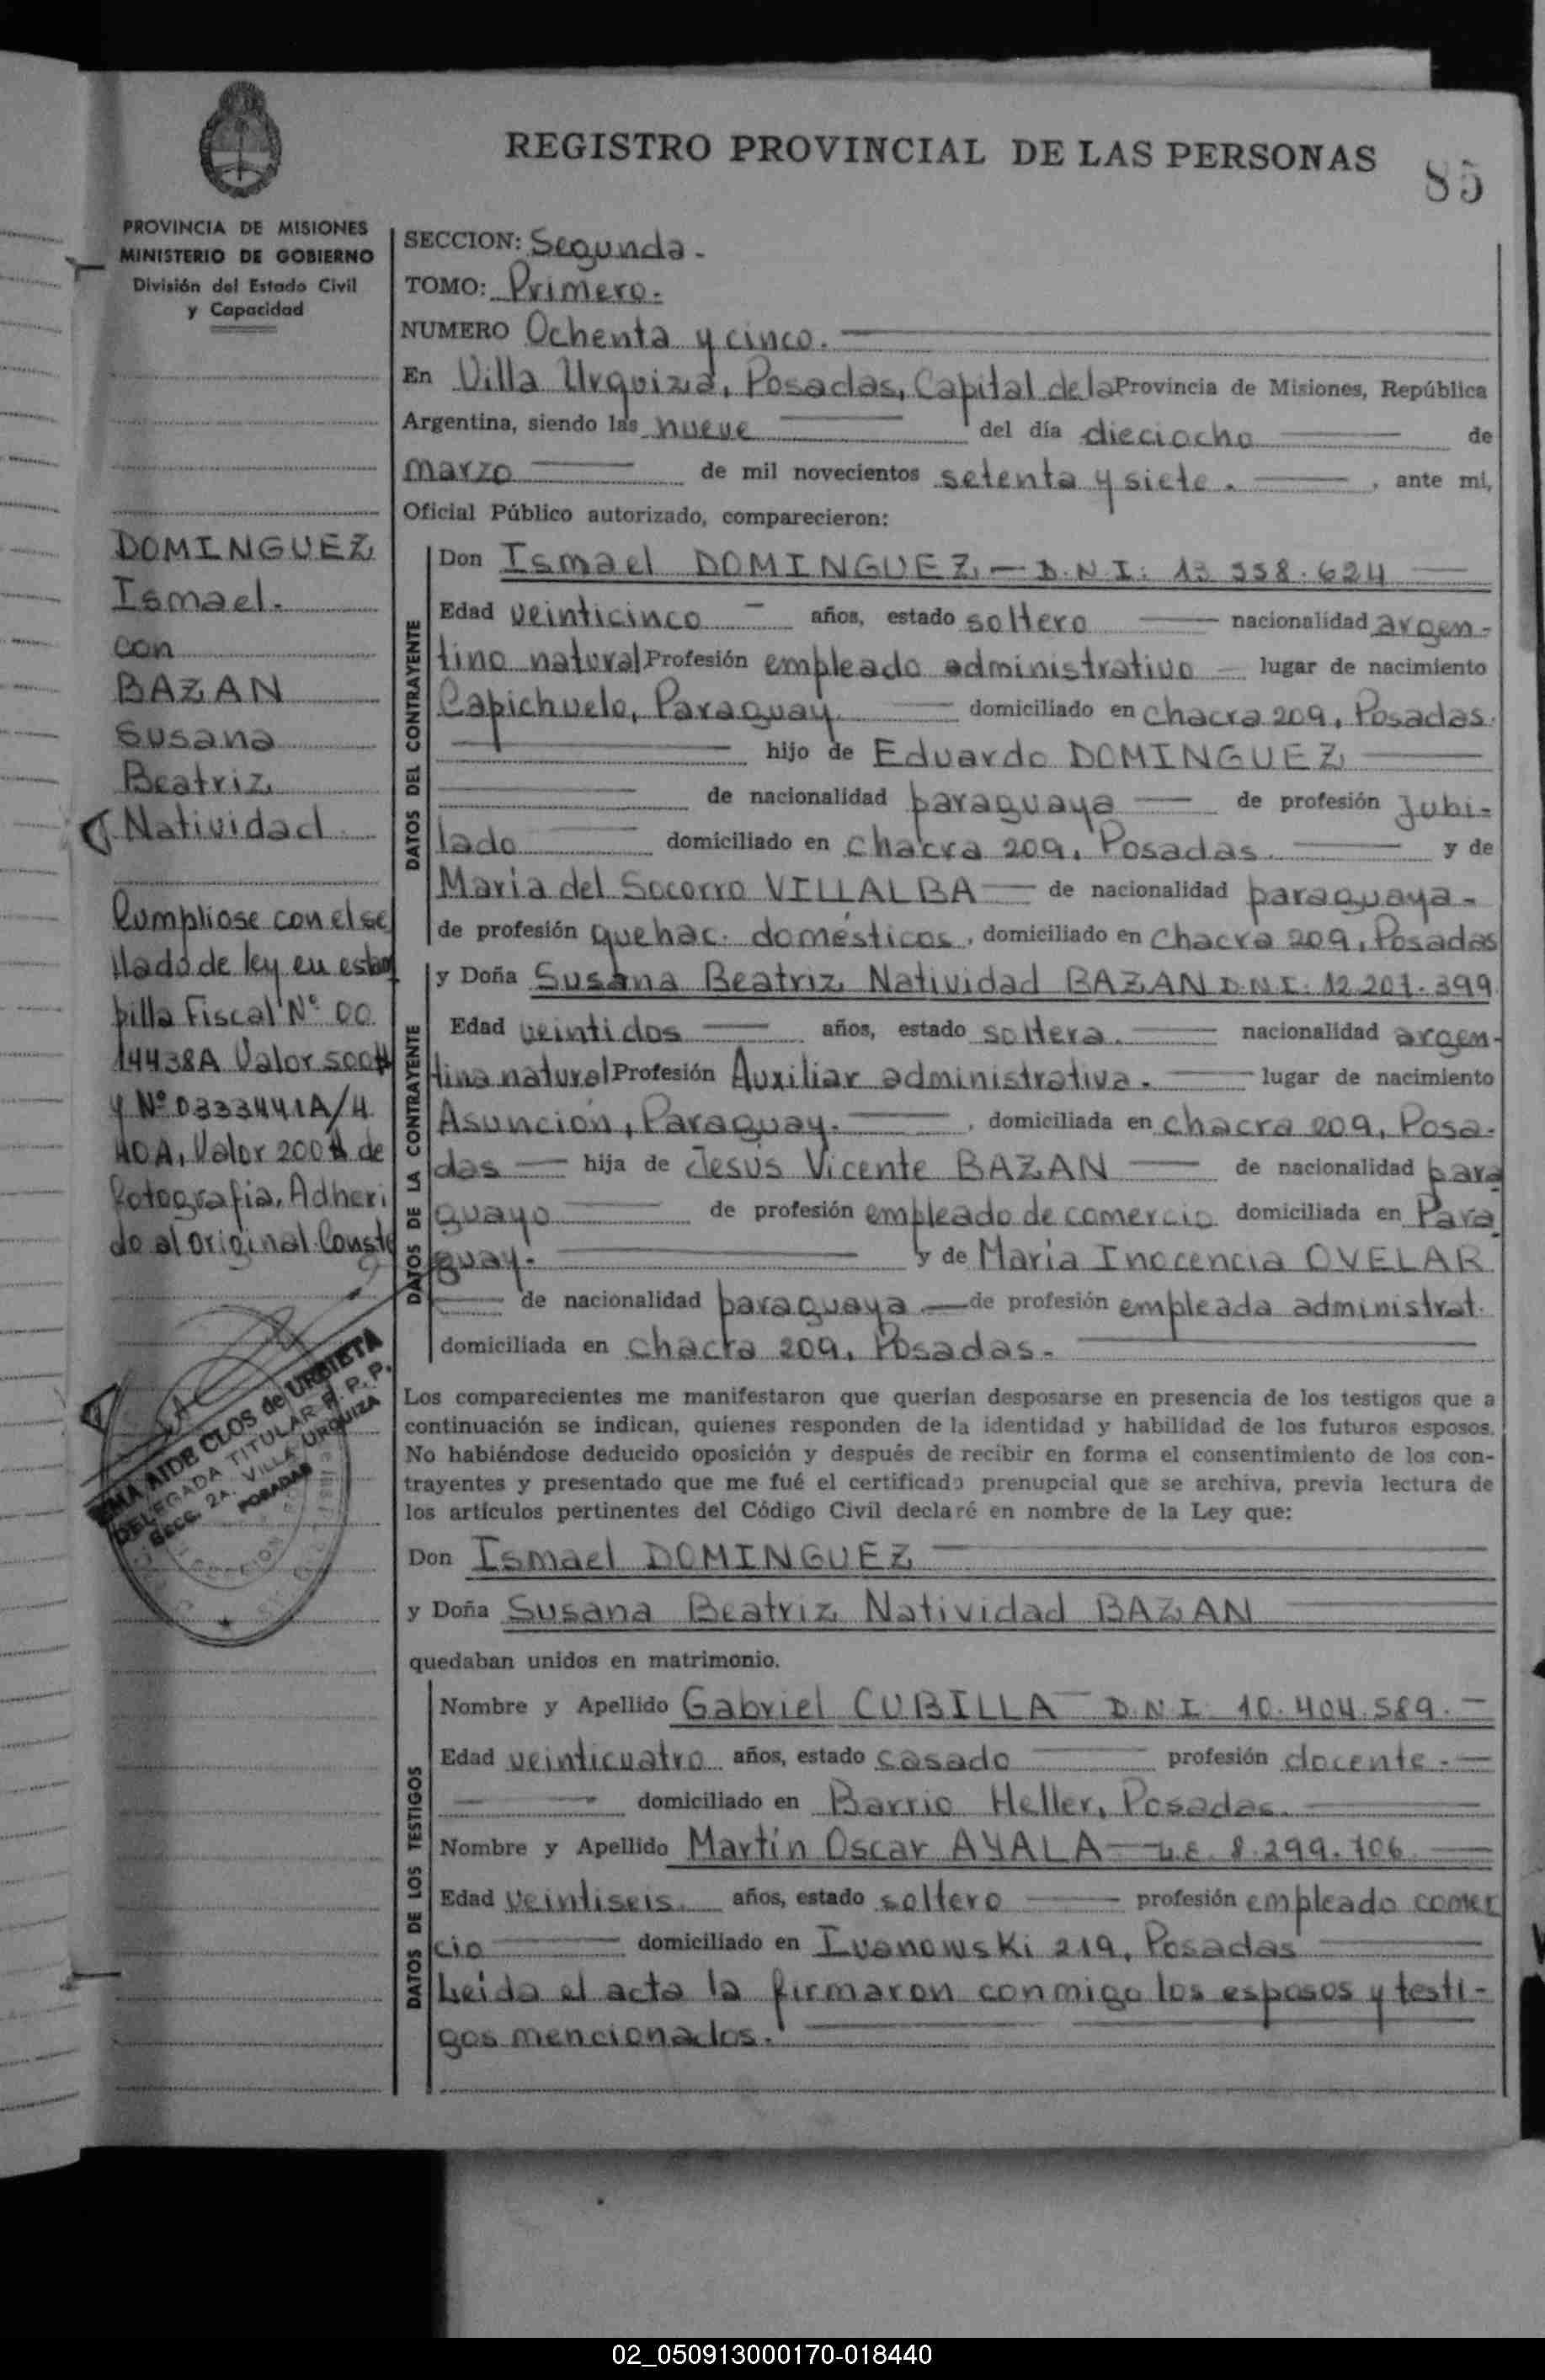 REGISTRO PROVINCIAL DE LAS PERSONAS
85
PROVINCIA DE MISIONES
MINISTERIO DE GOBIERNO
División del Estado Civil
y Capacidad
DOMINGUEZ
Ismael.
con
BAZAN
Susana
Beatriz
Natividad
Cumpliose con el se
llado de ley en estam
pilla Fiscal Nº 00
14438A Valor 500$
y Nº 0333441A/4
40A, Valor 200$ de
fotografia. Adheri
do al original. Conste
CLOS de URBIETA
DELEGADA TITULAR R. P. P.
Secc. 2A. VILLA URQUIZA
POSADAS
SECCION: Segunda.
TOMO: Primero.
NUMERO Ochenta y cinco.
En Villa Urquiza, Posadas, Capital de la Provincia de Misiones, República
Argentina, siendo las nueve del día dieciocho de
marzo de mil novecientos setenta y siete. , ante mi,
Oficial Público autorizado, comparecieron:
DATOS DEL CONTRAYENTE
Don Ismael DOMINGUEZ - D.N.I: 13 558.624
Edad veinticinco años, estado soltero nacionalidad argen-
tino natural Profesión empleado administrativo lugar de nacimiento
Capichuelo, Paraguay. domiciliado en chacra 209, Posadas.
hijo de Eduardo DOMINGUEZ
de nacionalidad paraguaya de profesión Jubi-
lado domiciliado en chacra 209, Posadas. y de
Maria del Socorro VILLALBA de nacionalidad paraguaya-
de profesión quehac. domésticos, domiciliado en chacra 209, Posadas
DATOS DE LA CONTRAYENTE
y Doña Susana Beatriz Natividad BAZAN D.N.I. 12.207.399
Edad veintidos años, estado soltera. nacionalidad argen-
tina natural Profesión Auxiliar administrativa. lugar de nacimiento
Asunción, Paraguay. , domiciliada en chacra 209, Posa-
das hija de Jesús Vicente BAZAN de nacionalidad para
guayo de profesión empleado de comercio domiciliada en Para
guay. y de Maria Inocencia OVELAR
de nacionalidad paraguaya. de profesión empleada administrat.
domiciliada en chacra 209, Posadas.
Los comparecientes me manifestaron que querían desposarse en presencia de los testigos que a
continuación se indican, quienes responden de la identidad y habilidad de los futuros esposos.
No habiéndose deducido oposición y después de recibir en forma el consentimiento de los con-
trayentes y presentado que me fué el certificado prenupcial que se archiva, previa lectura de
los artículos pertinentes del Código Civil declaré en nombre de la Ley que:
Don Ismael DOMINGUEZ
y Doña Susana Beatriz Natividad BAZAN
quedaban unidos en matrimonio.
DATOS DE LOS TESTIGOS
Nombre y Apellido Gabriel CUBILLA D.N.I. 10.404.589.
Edad veinticuatro años, estado casado profesión docente.
domiciliado en Barrio Heller, Posadas.
Nombre y Apellido Martín Oscar AYALA L.E. 8.299.706
Edad veintiseis. años, estado soltero profesión empleado comer
cio domiciliado en Ivanowski 219, Posadas
Leida el acta la firmaron conmigo los esposos y testi-
gos mencionados.
02_050913000170-018440